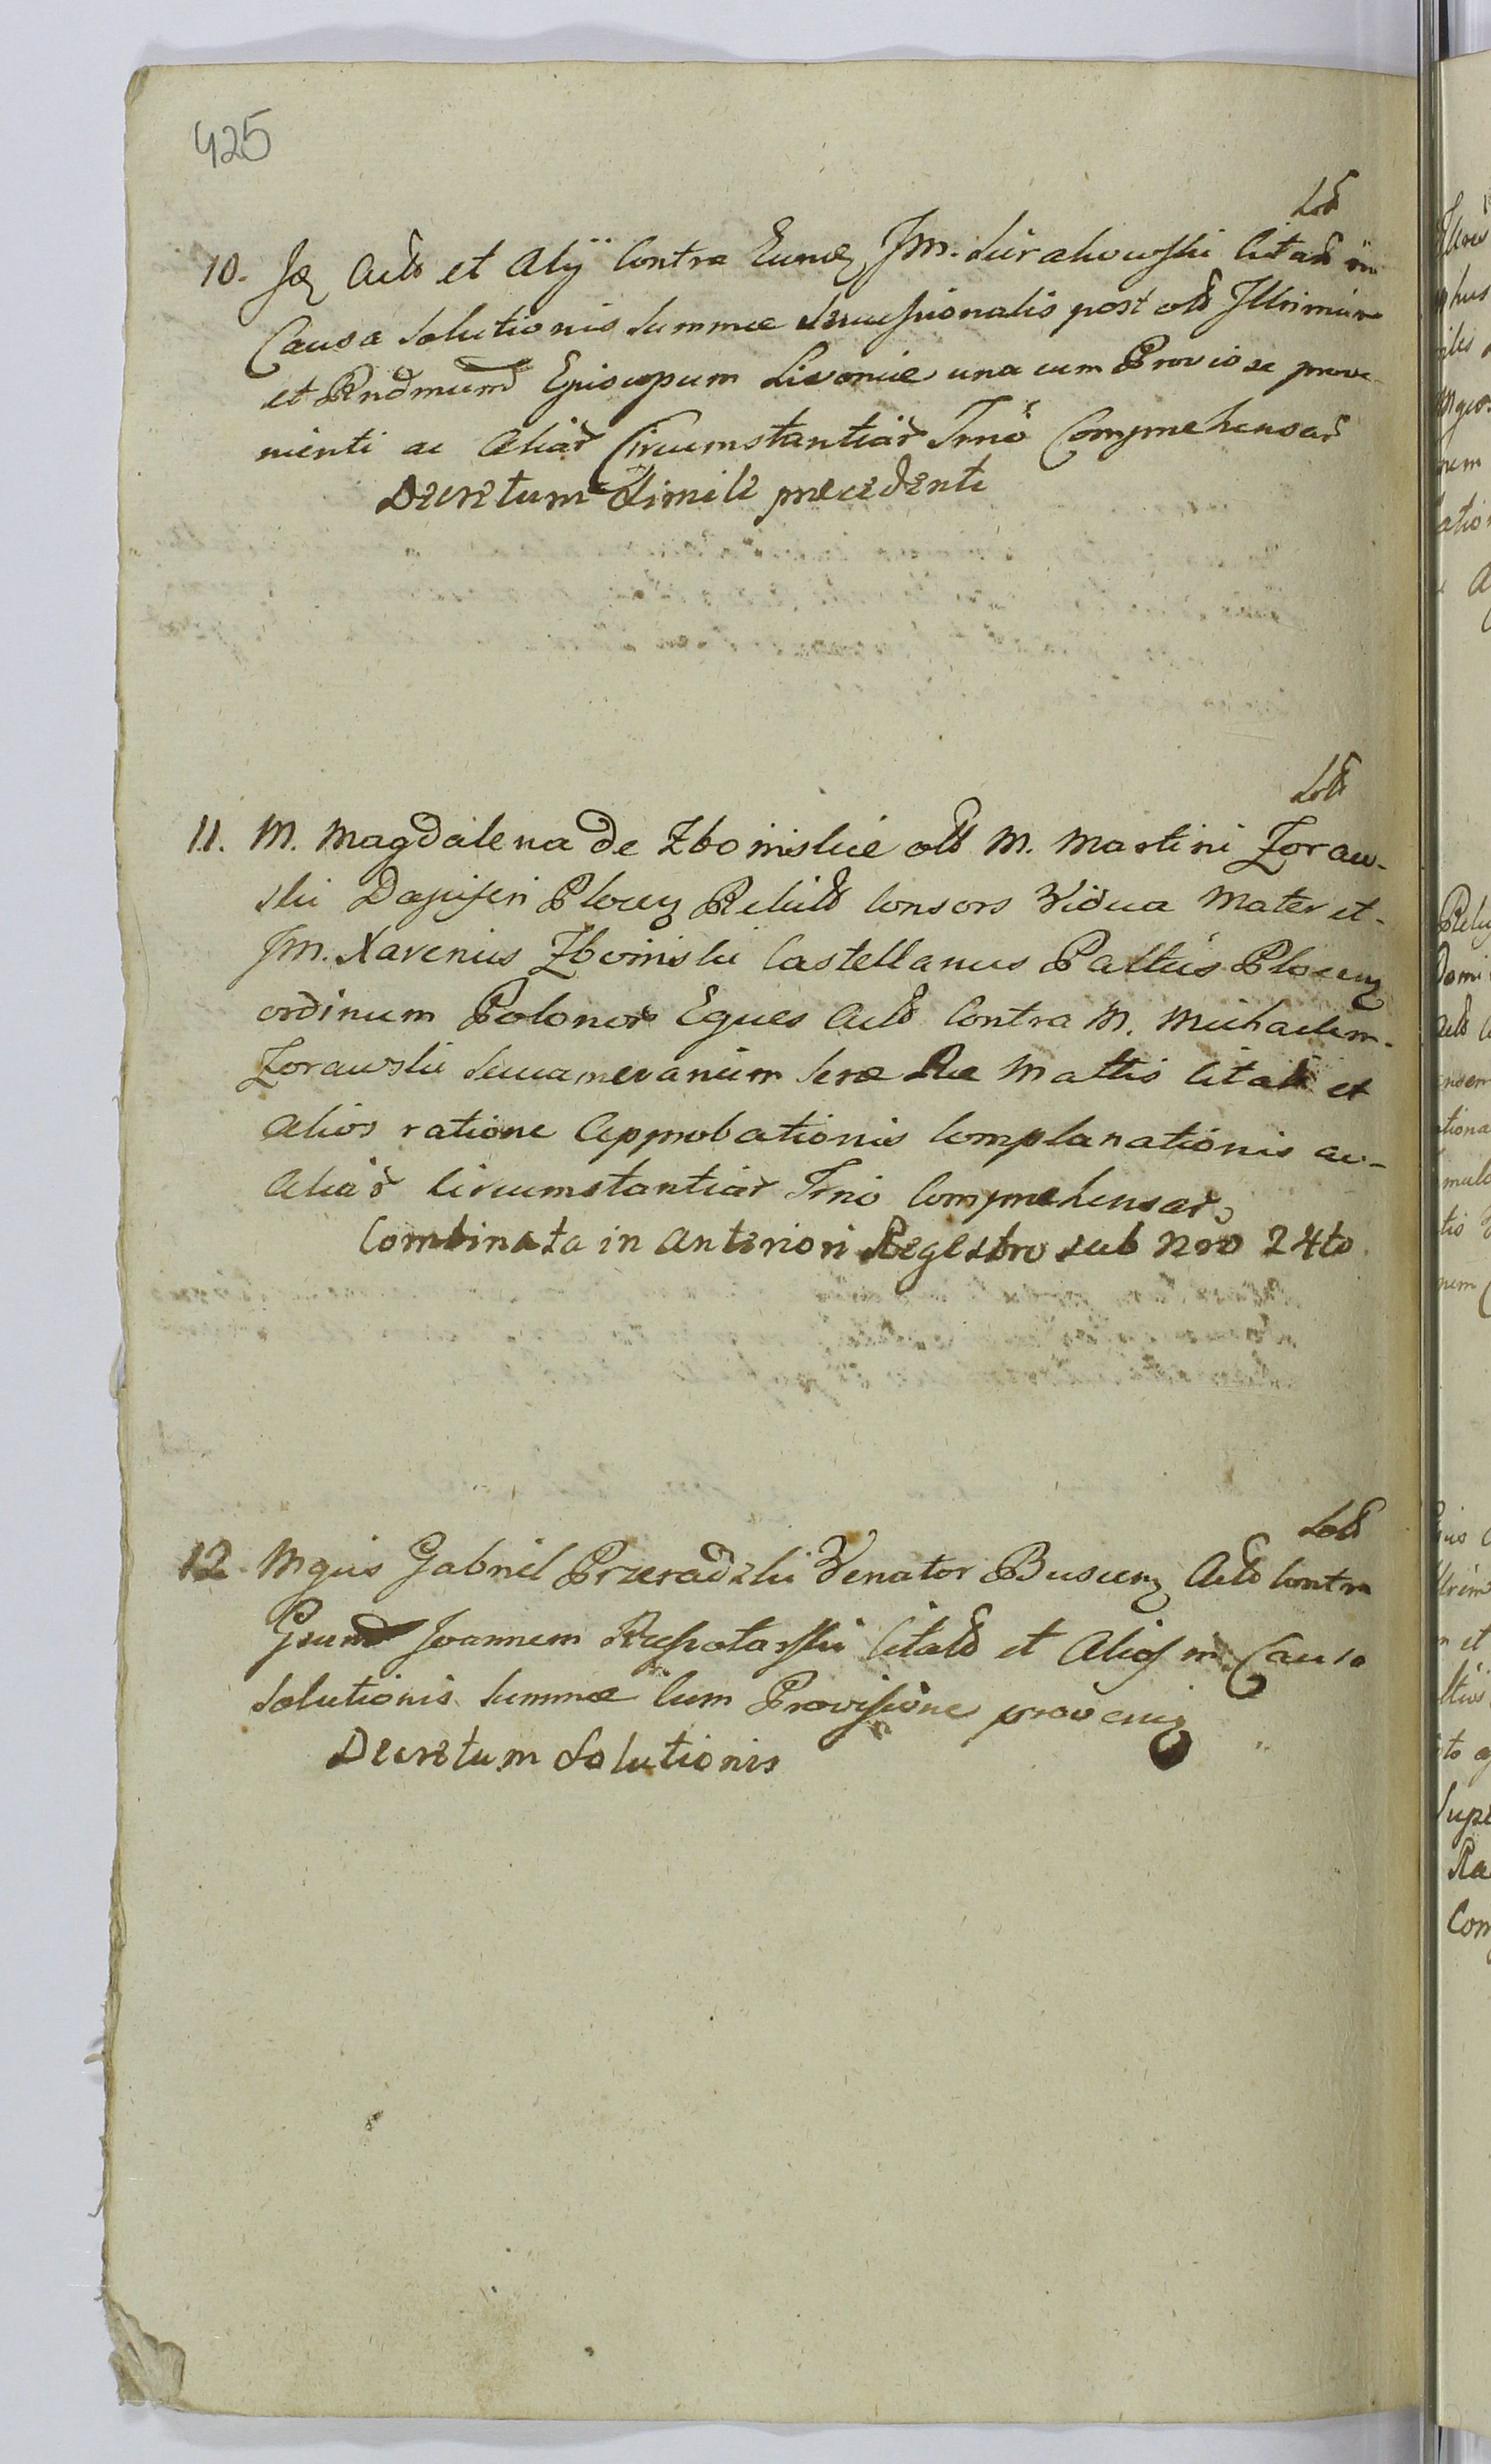 425
10. Idem Actor et Alij Contra Eundem JM. Sierakowski Citatum in
Causa Solutionis Summae Successionalis post olim Illrimum
et Rndmum Episcopum Livoniae una cum Provisione prove-
nienti ac Aliar Circumstantiar Trno Comprehensar
Decretum Simile precedenti
11. M. Magdalena de Zboinskie olim M. Martini Zoraw-
ski Dapiferi Plocen Relicta Consors Vidua Mater et
JM. Xaverius Zboinski Castellanus Plocen
ordinum Polonor Eques Actor Contra M. Michaelem
Zorawski Succamerarium Citatum et
Alios ratione Approbationis Complanationis ac
Aliar Circumstantiar Trno Comprehensar
Combinata in Anteriori Regestro sub Nro 24to
12. Mgus Gabriel Przeradzki Venator Buscen Actor Contra
Gsum Joannem Citatum et Alios in Causa
Solutionis Summae Cum Provisione provenien
Decretum Solutionis